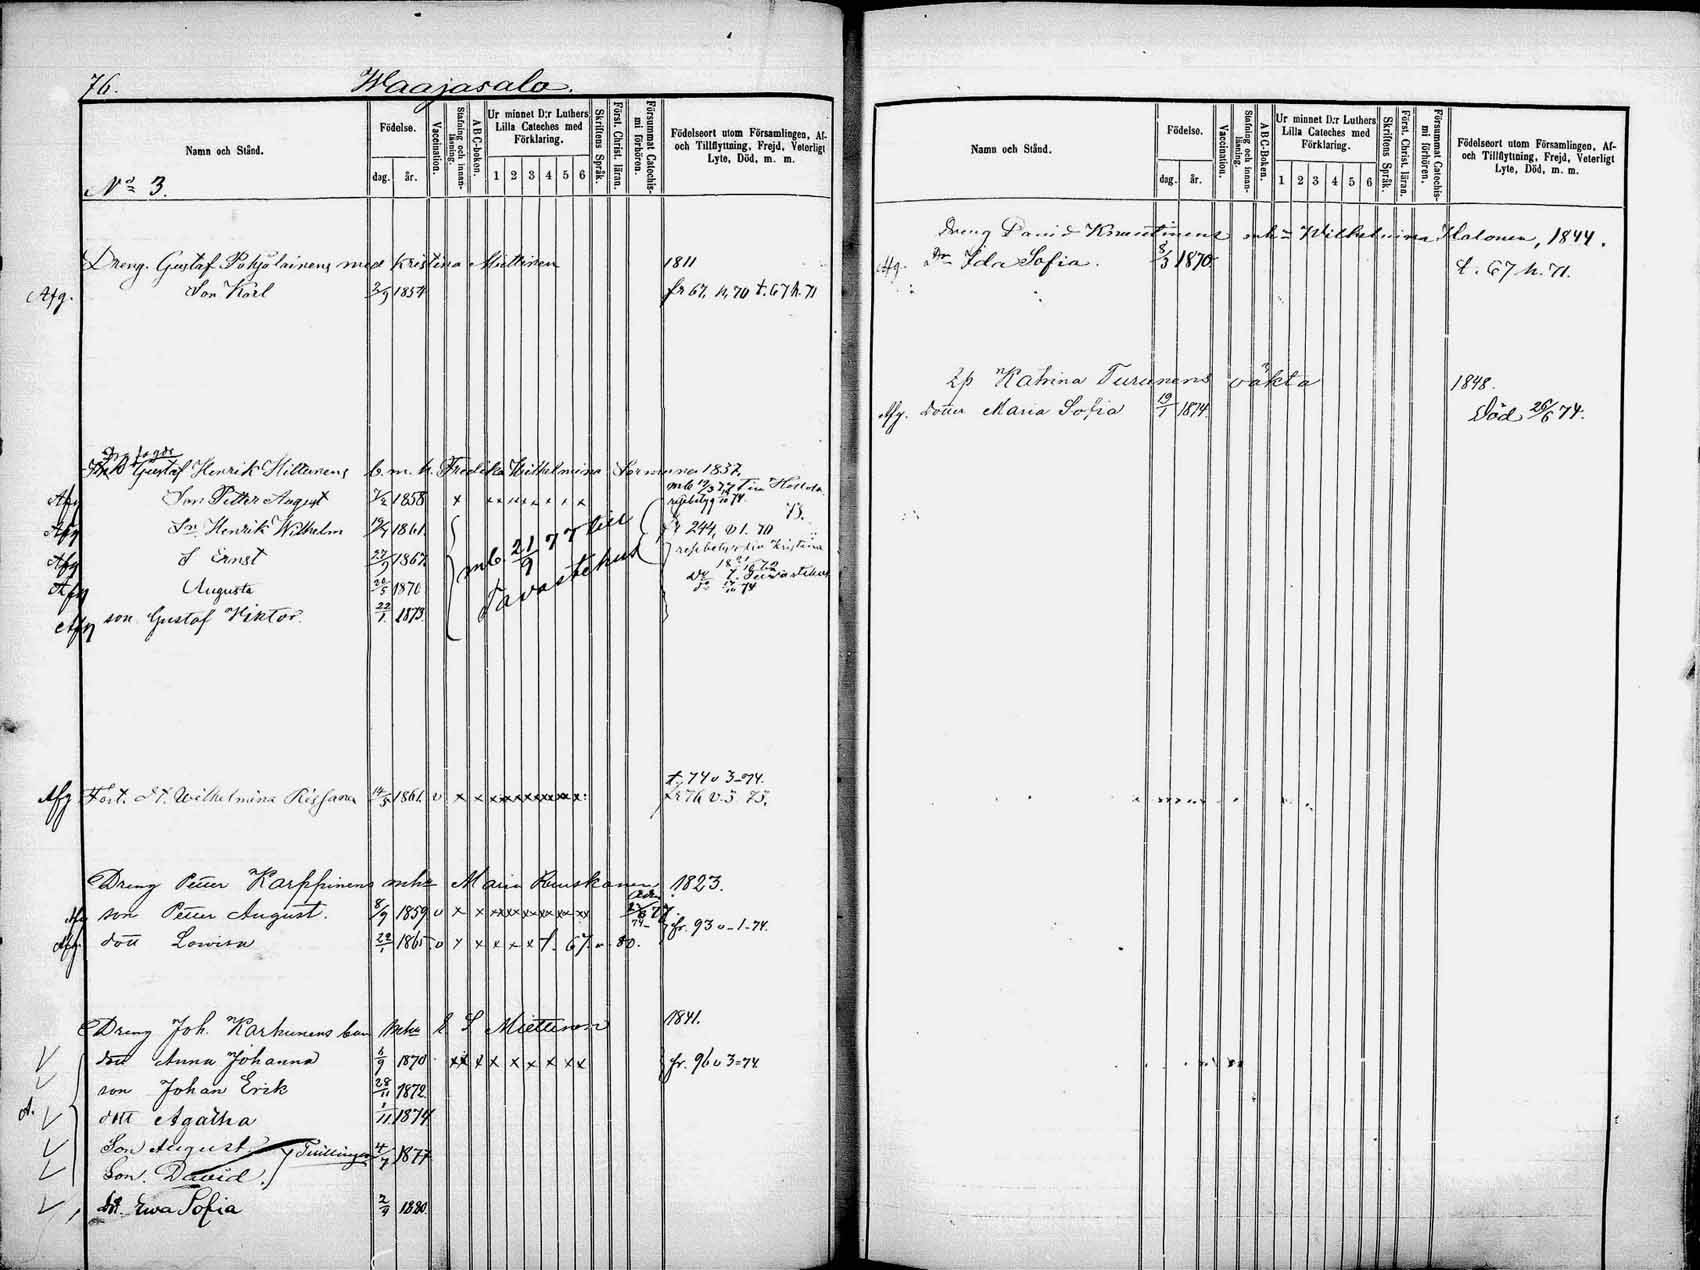 76.
Waajasalo.
Namn och Stånd.
Födelse.
dag.
år.
Vaccination.
Stafning och innan-läsning.
ABC-boken.
Ur minnet D:r Luthers Lilla Cateches med Förklaring.
1 2 3 4 5 6
Skriftens Språk.
Först. Christ. läran.
Försummat Catechis-mi förhören.
Födelseort utom Församlingen, Af- och Tillflyttning, Frejd, Veterligt Lyte, Död, m. m.
No 3.
Dreng. Gustaf Pohjolainens med Kristina Miettinen 1811
Afg. Son Karl 3/9 1857 fr 67, h, 70 t. 67 h. 71
Gustaf Henrik Hiltunens b. m. h. Fredrika Wilhelmina 1837.
Afg Son Petter August 1858 x
Afg Sn. Henrik Wilhelm 1861. fr 244, v 1. 70
Afg S Ernst 27/9 1867
Afg Augusta 20/5 1870
Afg son Gustaf Viktor. 22/1 1873
mb. 21/9 77 till Tavastehus
t. 74 v 3-74.
Afg Wilhelmina 14/5 1861. v x x fr 76 v. 3 75.
Dreng Petter Karppinens mha Maria Ruuskanen 1823.
son Petter August. 8/9 1859 v x x fr. 93 v-1-74.
Afg. dott Lowisa 22/1 1865 v x x x x x t. 67 v. 80.
Dreng Joh. Karhunens barn mha Miettinen 1841.
dott Anna Johanna 6/9 1870 fr. 96 v 3-74
son Johan Erik 28/11 1872
A. dott Agatha 1/11 1874
Son August Tvillingar 4/7 1877
Son. David.
dt. Ewa Sofia 2/9 1880.
Namn och Stånd.
Födelse.
dag.
år.
Vaccination.
Stafning och innan-läsning.
ABC-Boken.
Ur minnet D:r Luthers Lilla Cateches med Förklaring.
1 2 3 4 5 6
Skriftens Språk.
Först. Christ. läran.
Försummat Catechis-mi förhören.
Födelseort utom Församlingen, Af- och Tillflyttning, Frejd, Veterligt Lyte, Död, m. m.
Dreng David Knuutinens mha Wilhelmina Halonen, 1844.
Afg. Dr Ida Sofia. 8/3 1870. t. 67 h. 71.
Katrina Turunens oäkta 1848.
Afg. dotter Maria Sofia 19/1 1874. Död 26/6 74.